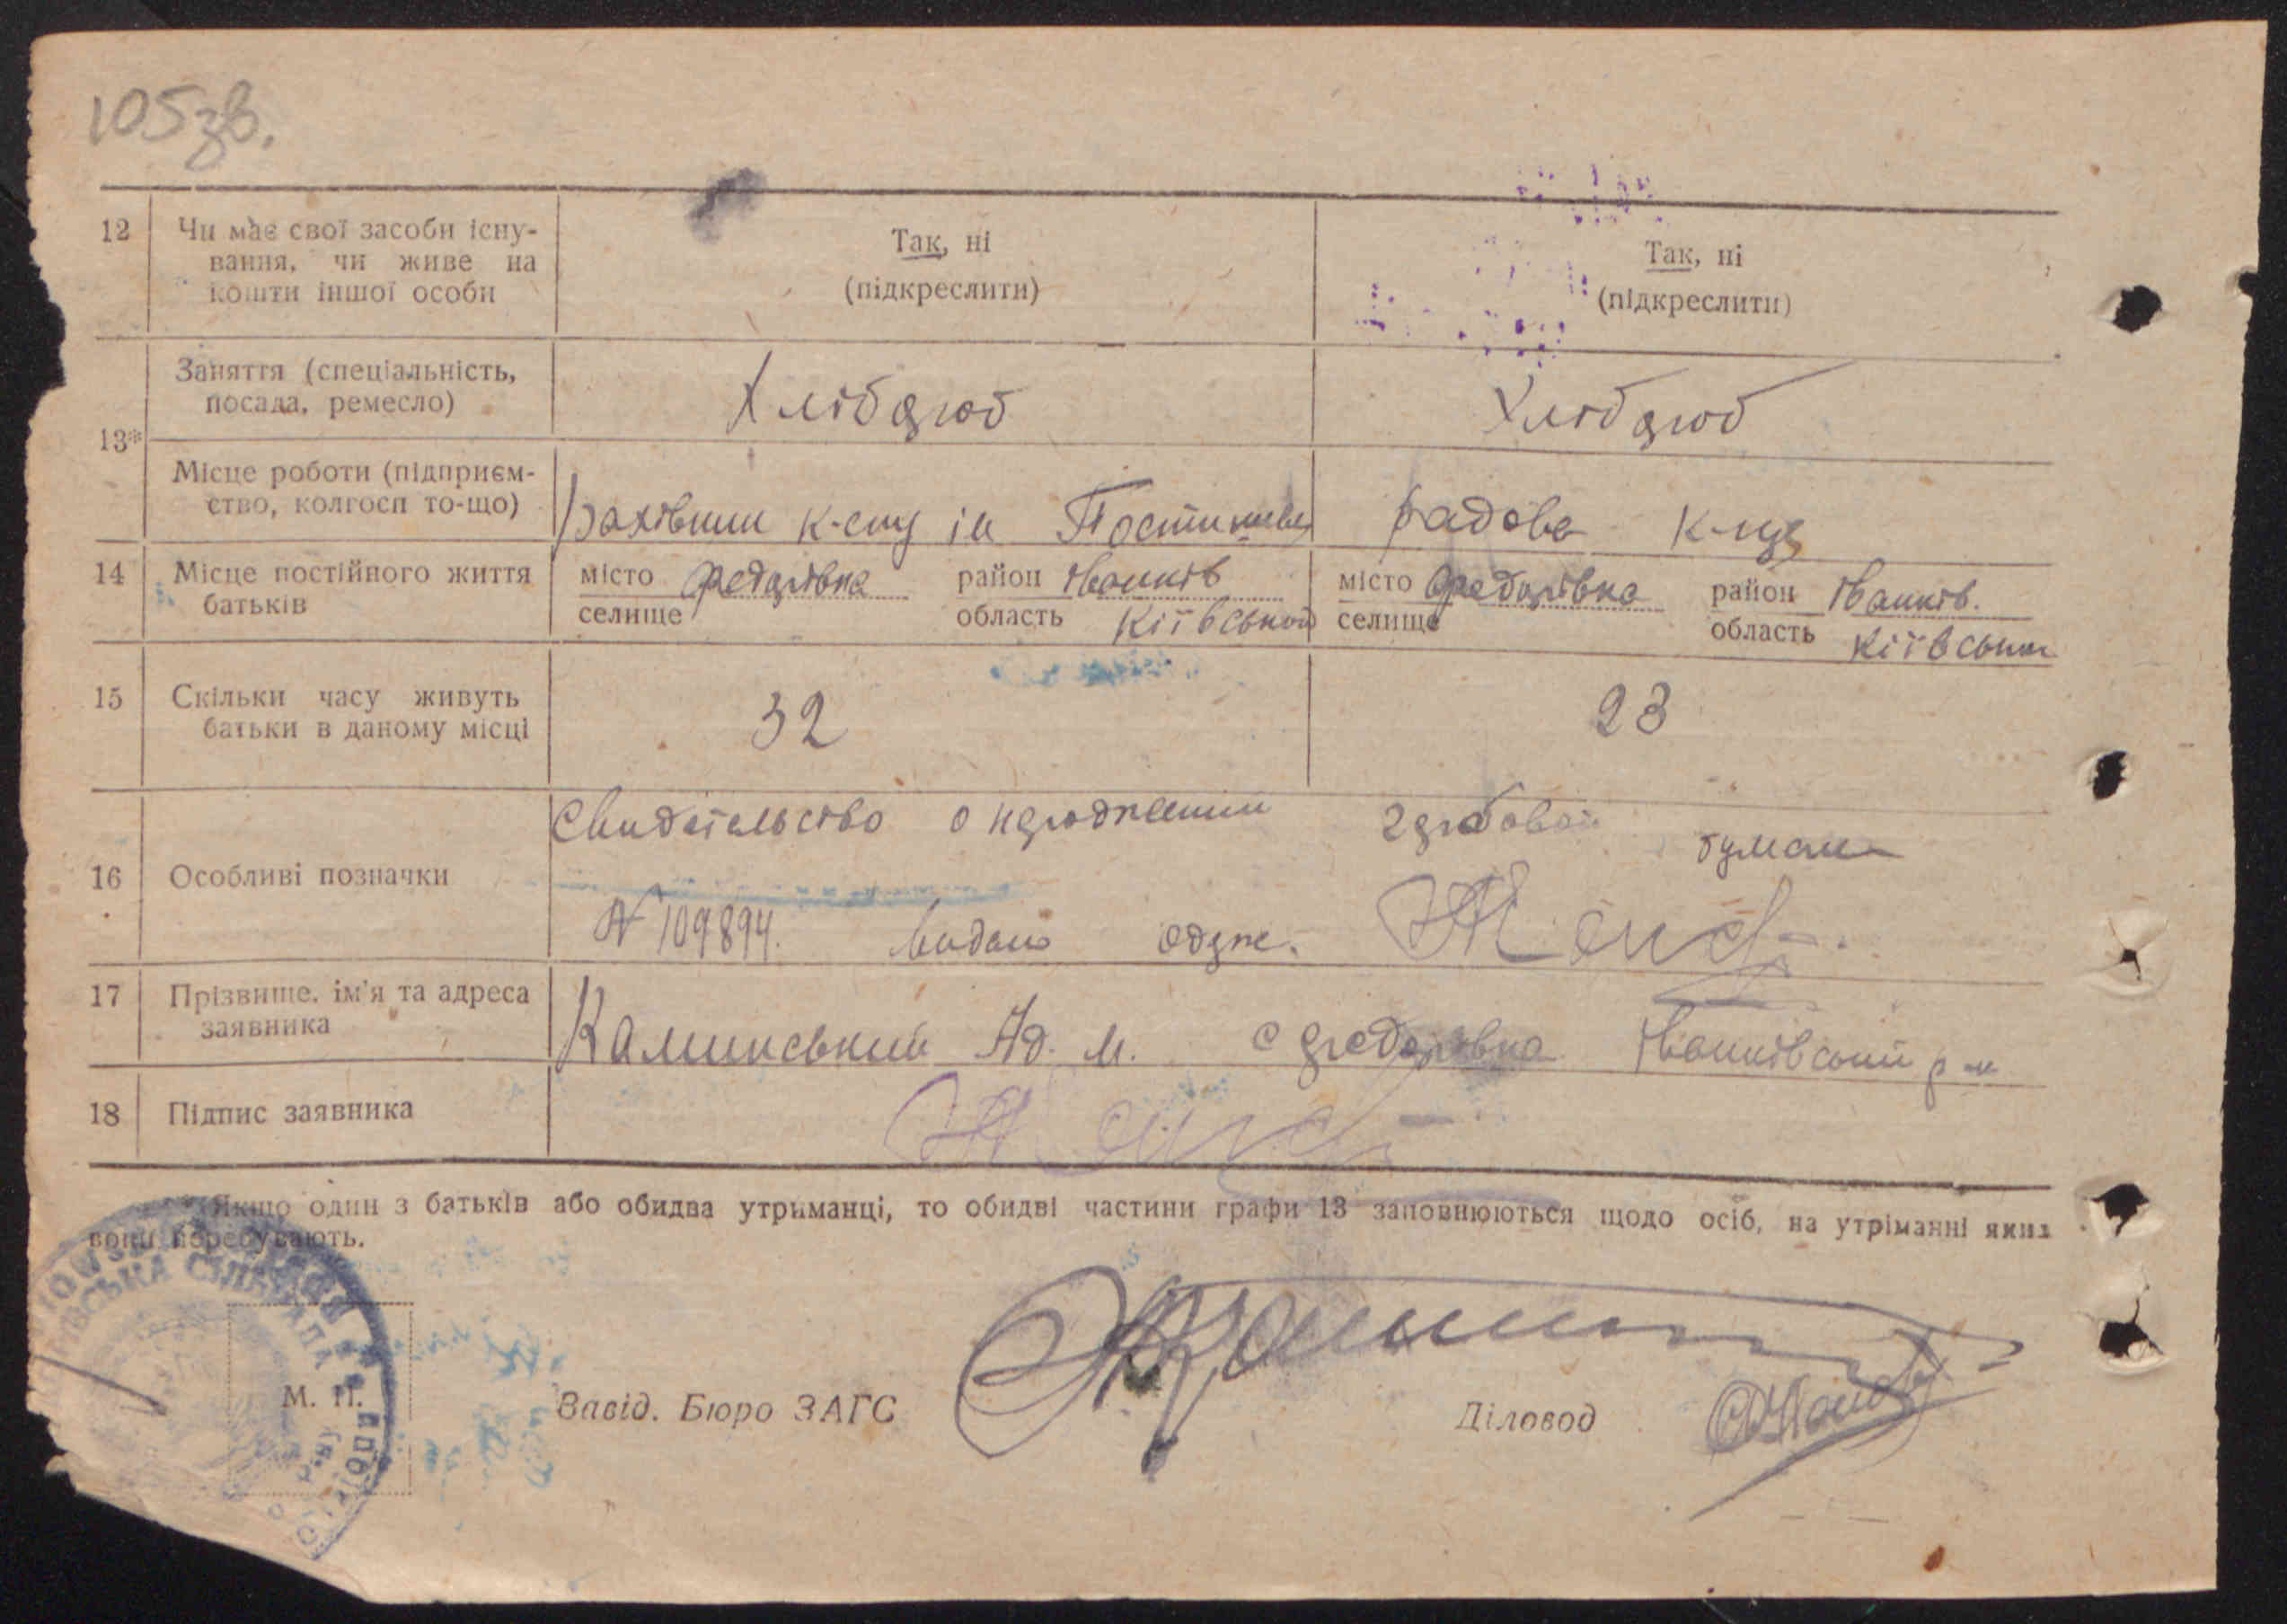 105зв.
12 Чи має свої засоби існу-
вання, чи живе на
кошти іншої особи
Так, ні
(підкреслити)
Так, ні
(підкреслити)
13*
Заняття (спеціальність,
посада, ремесло)
Хлібороб
Хлібороб
Місце роботи (підприєм-
ство, колгосп то-що)
к-спу ім Постишева
радова к-це
14 Місце постійного життя
батьків
місто Федорівка район Іванків
селище область Кіївськой
місто Федорівка район Іванків.
селище область Кіївськой
15 Скільки часу живуть
батьки в даному місці
32
23
16 Особливі позначки
Свидетельство о нарождении гербовой
N 109894. видано одерж.
17 Прізвище, ім'я та адреса
заявника
Каминський Ад. М. с Федорівка Іванківський р-н
18 Підпис заявника
* Якщо один з батьків або обидва утриманці, то обидві частини графи 13 заповнюються щодо осіб, на утріманні яких
вони перебувають.
М. П.
Завід. Бюро ЗАГС
Діловод